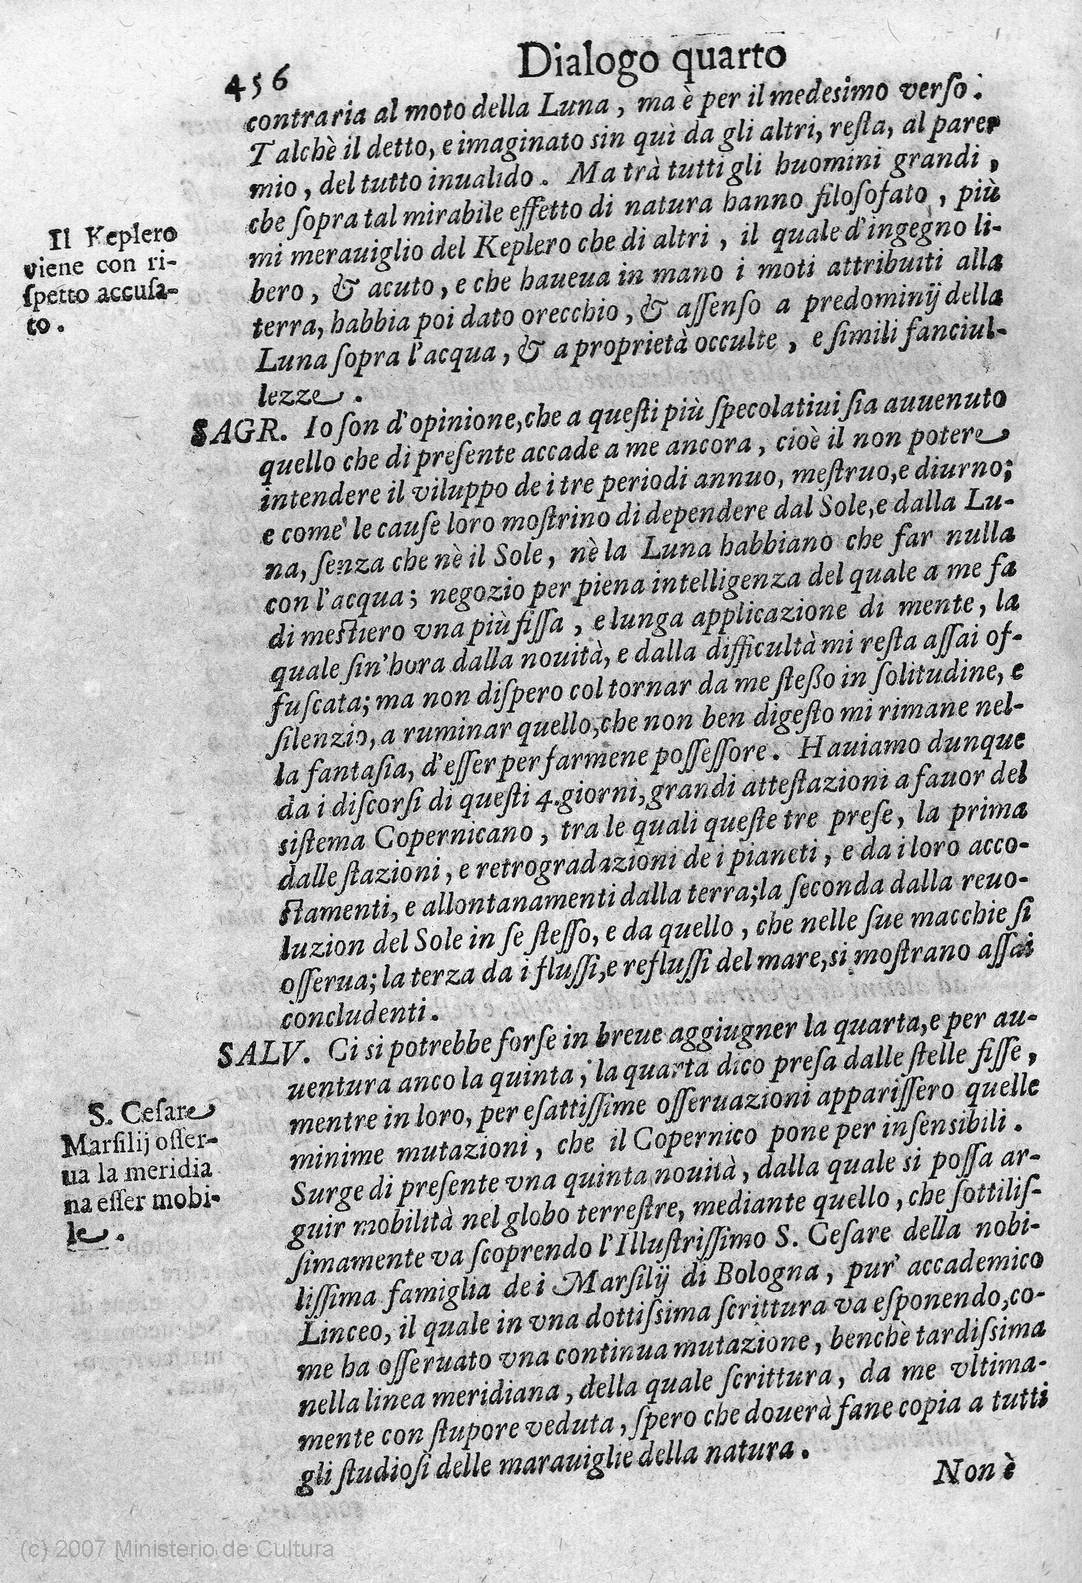 456
Dialogo quarto
contraria al moto della Luna, ma è per il medesimo verſo.
Talchè il detto, e imaginato sin quì da gli altri, reſta, al parer
mio, del tutto inualido. Ma trà tutti gli huomini grandi,
che ſopra tal mirabile effetto di natura hanno filoſofato, più
mi merauiglio del Keplero che di altri, il quale d'ingegno li-
bero, & acuto, e che haueua in mano i moti attribuiti alla
terra, habbia poi dato orecchio, & aſſenſo a predominij della
Luna ſopra l'acqua, & a proprietà occulte, e ſimili fanciul-
lezze.
Il Keplero
viene con ri-
ſpetto accuſa-
to.
SAGR. Io ſon d'opinione, che a queſti più ſpecolatiui ſia auuenuto
quello che di preſente accade a me ancora, cioè il non potere
intendere il viluppo de i tre periodi annuo, meſtruo, e diurno;
e come le cauſe loro moſtrino di dependere dal Sole, e dalla Lu-
na, ſenza che nè il Sole, nè la Luna habbiano che far nulla
con l'acqua; negozio per piena intelligenza del quale a me fa
di meſtiero vna più fiſſa, e lunga applicazione di mente, la
quale ſin'hora dalla nouità, e dalla difficultà mi reſta aſſai of-
fuſcata; ma non diſpero col tornar da me ſteßo in ſolitudine, e
ſilenzio, a ruminar quello, che non ben digeſto mi rimane nel-
la fantaſia, d'eſſer per farmene poſſeſſore. Hauiamo dunque
da i diſcorſi di queſti 4. giorni, grandi atteſtazioni a fauor del
siſtema Copernicano, tra le quali queſte tre preſe, la prima
dalle ſtazioni, e retrogradazioni de i pianeti, e da i loro acco-
ſtamenti, e allontanamenti dalla terra; la ſeconda dalla reuo-
luzion del Sole in ſe ſteſſo, e da quello, che nelle ſue macchie ſi
oſſerua; la terza da i fluſſi, e refluſſi del mare, si moſtrano aſſai
concludenti.
SALV. Ci si potrebbe forſe in breue aggiugner la quarta, e per au-
uentura anco la quinta; la quarta dico preſa dalle ſtelle fiſſe,
mentre in loro, per eſattiſſime oſſeruazioni appariſſero quelle
minime mutazioni, che il Copernico pone per inſensibili.
Surge di preſente vna quinta nouità, dalla quale si poſſa ar-
guir mobilità nel globo terreſtre, mediante quello, che ſottiliſ-
ſimamente va ſcoprendo l'Illuſtriſſimo S. Ceſare della nobi-
liſſima famiglia de i Marſilij di Bologna, pur' accademico
Linceo, il quale in vna dottiſsima ſcrittura va eſponendo, co-
me ha oſſeruato vna continua mutazione, benchè tardiſsima
nella linea meridiana, della quale ſcrittura, da me vltima-
mente con ſtupore veduta, ſpero che douerà fane copia a tutti
gli ſtudioſi delle marauiglie della natura.
S. Ceſare
Marſilij oſſer-
ua la meridia
na eſſer mobi-
le.
Non è
(c) 2007 Ministerio de Cultura